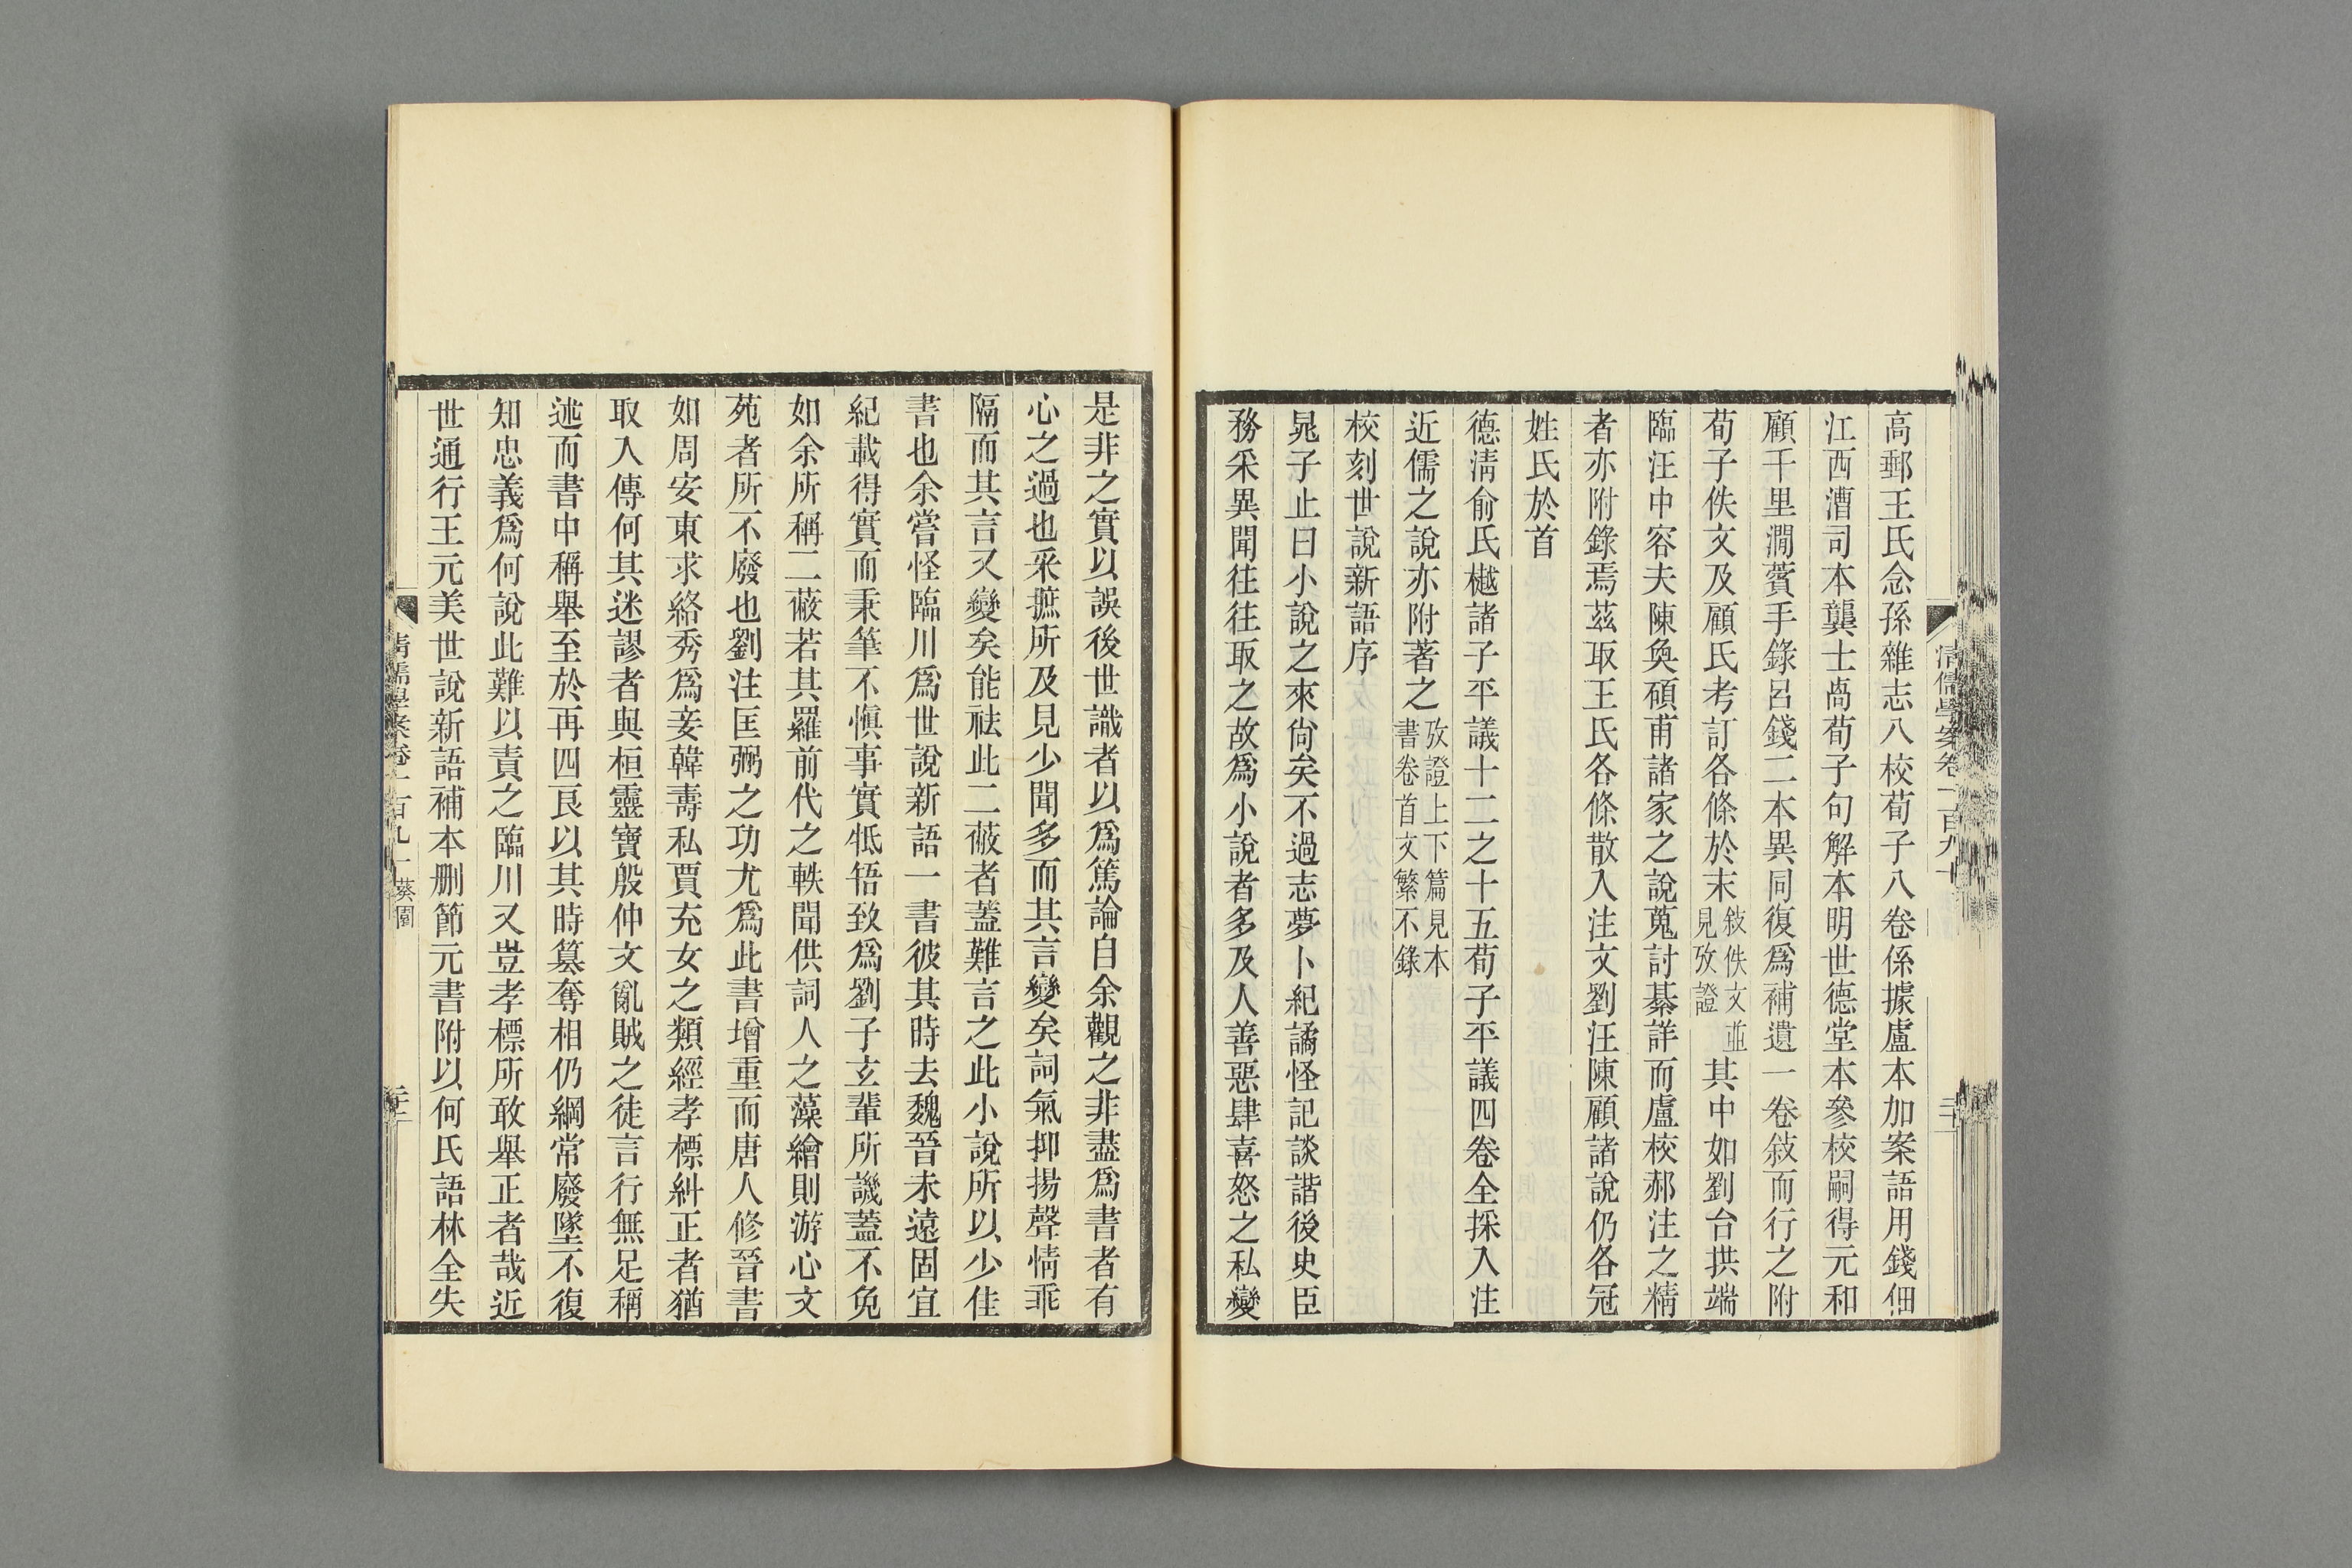 高郵王氏念孫雜志八校荀子八卷係據盧本加案語用錢佃
江西漕司本龔士卨荀子句解本明世德堂本參校嗣得元和
顧千里澗薲手錄呂錢二本異同復爲補遺一卷敍而行之附
荀子佚文及顧氏考訂各條於末敍佚文並見攷證其中如劉台拱端
臨汪中容夫陳奐碩甫諸家之說蒐討綦詳而盧校郝注之精
者亦附錄焉茲取王氏各條散入注文劉汪陳顧諸說仍各冠
姓氏於首
德淸俞氏樾諸子平議十二之十五荀子平議四卷全採入注
近儒之說亦附著之攷證上下篇見本書卷首文繁不錄
校刻世說新語序
晁子止曰小說之來尙矣不過志夢卜紀譎怪記談諧後史臣
務采異聞往往取之故爲小說者多及人善惡肆喜怒之私變
清儒學案卷一百九十
是非之實以誤後世識者以爲篤論自余觀之非盡爲書者有
心之過也采摭所及見少聞多而其言變矣詞氣抑揚聲情乖
隔而其言又變矣能祛此二蔽者蓋難言之此小說所以少佳
書也余嘗怪臨川爲世說新語一書彼其時去魏晉未遠固宜
紀載得實而秉筆不愼事實牴牾致爲劉子玄輩所譏蓋不免
如余所稱二蔽若其羅前代之軼聞供詞人之藻繪則游心文
苑者所不廢也劉注匡弼之功尤爲此書增重而唐人修晉書
如周安東求絡秀爲妾韓壽私賈充女之類經孝標糾正者猶
取入傳何其迷謬者與桓靈寶殷仲文亂賊之徒言行無足稱
述而書中稱舉至於再四良以其時篡奪相仍綱常廢墜不復
知忠義爲何說此難以責之臨川又豈孝標所敢舉正者哉近
世通行王元美世說新語補本刪節元書附以何氏語林全失
葵園